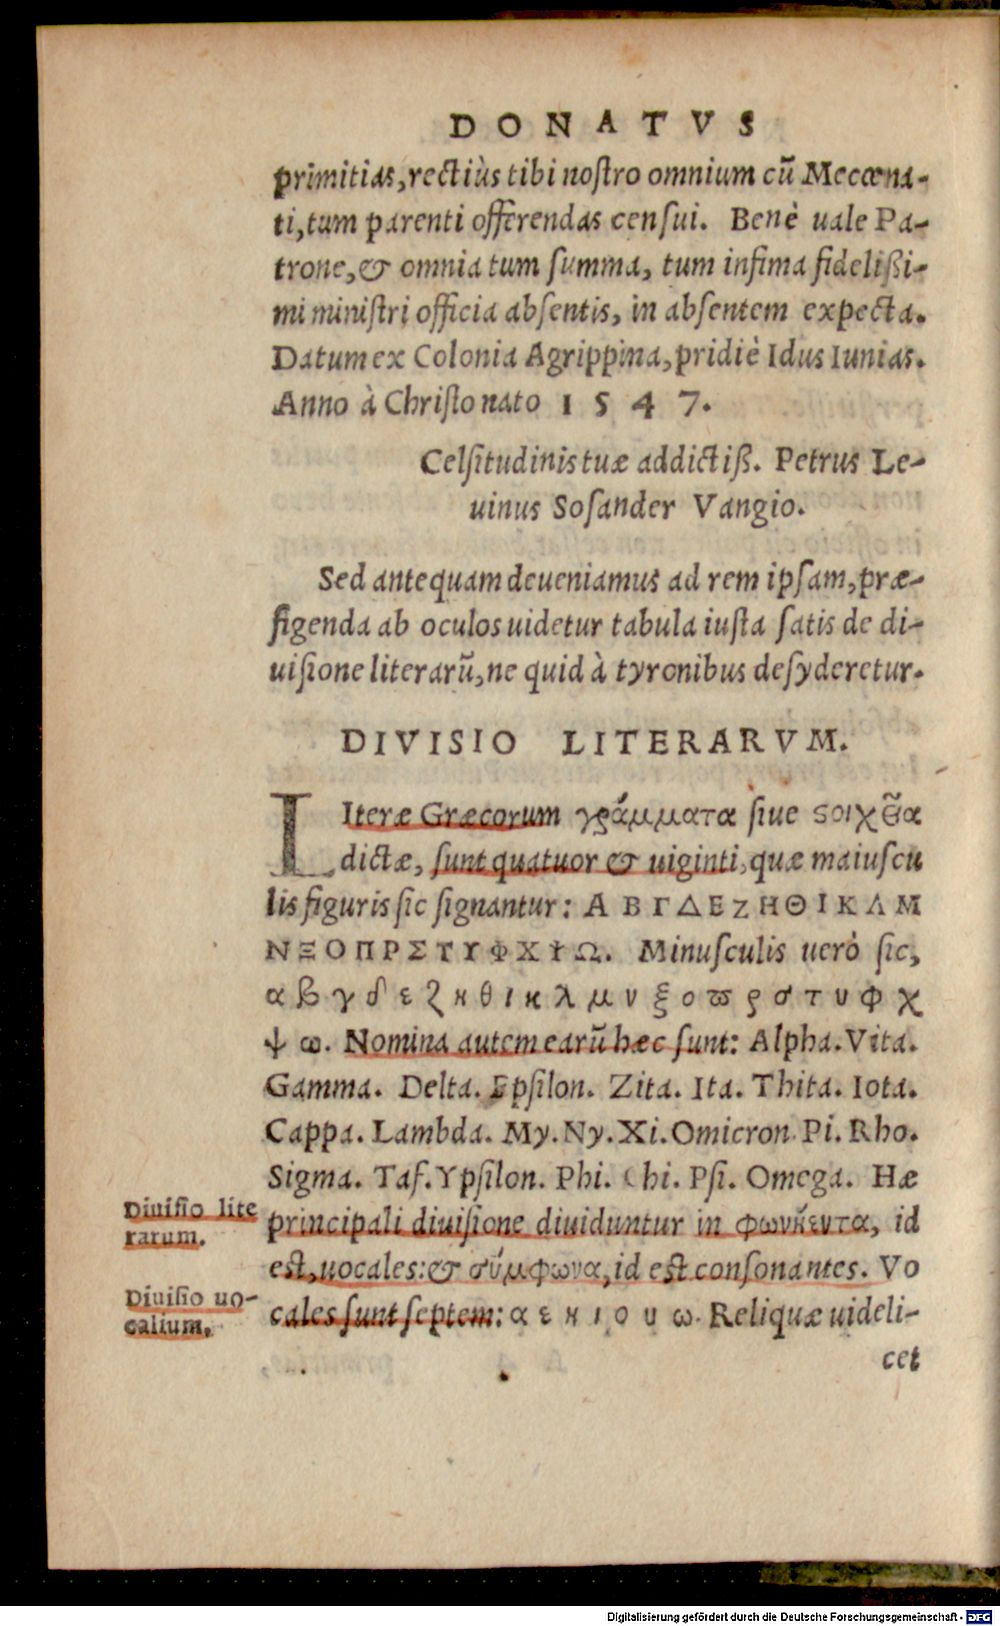 DONATVS
primitias, rectiùs tibi noſtro omnium cũ Mecœna-
ti, tum parenti offerendas cenſui. Benè uale Pa-
trone, & omnia tum ſumma, tum infima fideliſſi-
mi miniſtri officia abſentis, in abſentem expecta.
Datum ex Colonia Agrippina, pridiè Idus Iunias.
Anno à Chriſto nato 1547.
Celſitudinis tuæ addictiſſ. Petrus Le-
uinus Soſander Vangio.
Sed antequam deueniamus ad rem ipſam, præ-
figenda ab oculos uidetur tabula iuſta ſatis de di-
uiſione literarũ, ne quid à tyronibus deſyderetur.
DIVISIO LITERARVM.
LIteræ Græcorum γράμματα ſiue ϛοιχεῖα
dictæ, ſunt quatuor & uiginti, quæ maiuscu
lis figuris ſic ſignantur: Α Β Γ Δ Ε Ζ Η Θ Ι Κ Λ Μ
Ν Ξ Ο Π Ρ Σ Τ Υ Φ Χ Ψ Ω. Minuſculis uerò ſic,
α β γ δ ε ζ η θ ι κ λ μ ν ξ ο ϖ ρ σ τ υ φ χ
ψ ω. Nomina autem earũ hæc ſunt: Alpha. Vita.
Gamma. Delta. Epſilon. Zita. Ita. Thita. Iota.
Cappa. Lambda. My. Ny. Xi. Omicron. Pi. Rho.
Sigma. Taf. Ypſilon. Phi. Chi. Pſi. Omega. Hæ
Diuiſio lite
rarum.
principali diuiſione diuiduntur in φωνήεντα, id
eſt, uocales: & σύμφωνα, id eſt conſonantes. Vo
Diuiſio uo-
calium.
cales ſunt ſeptem: α ε η ι ο υ ω. Reliquæ uideli-
cet
Digitalisierung gefördert durch die Deutsche Forschungsgemeinschaft - DFG